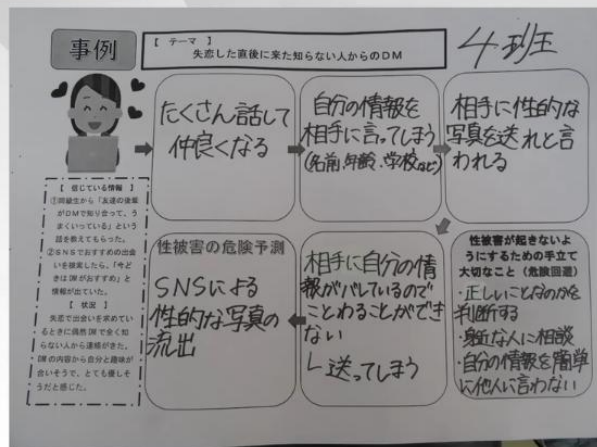 事例
【 テーマ 】
失恋した直後に来た知らない人からのDM
4班
たくさん話して
仲良くなる
自分の情報を
相手に言ってしまう
(名前,年齢,学校など)
相手に性的な
写真を送れと言
われる
【 信じている情報 】
①同級生から「友達の後輩
がDMで知り合って、う
まくいっている」という
話を教えてもらった。
②SNSでおすすめの出会
いを検索したら、「今ど
きはDMがおすすめ」と
情報が出ていた。
【 状況 】
失恋で出会いを求めてい
るときに偶然DMで全く知
らない人から連絡がきた。
DMの内容から自分と趣味が
合いそうで、とても優しそ
うだと感じた。
性被害の危険予測
SNSによる
性的な写真の
流出
相手に自分の情
報がバレているので
ことわることができ
ない
↳送ってしまう
性被害が起きないよ
うにするための手立て
大切なこと(危険回避)
・正しいことなのかを
判断する
・身近な人に相談
・自分の情報を簡単
に他人に言わない